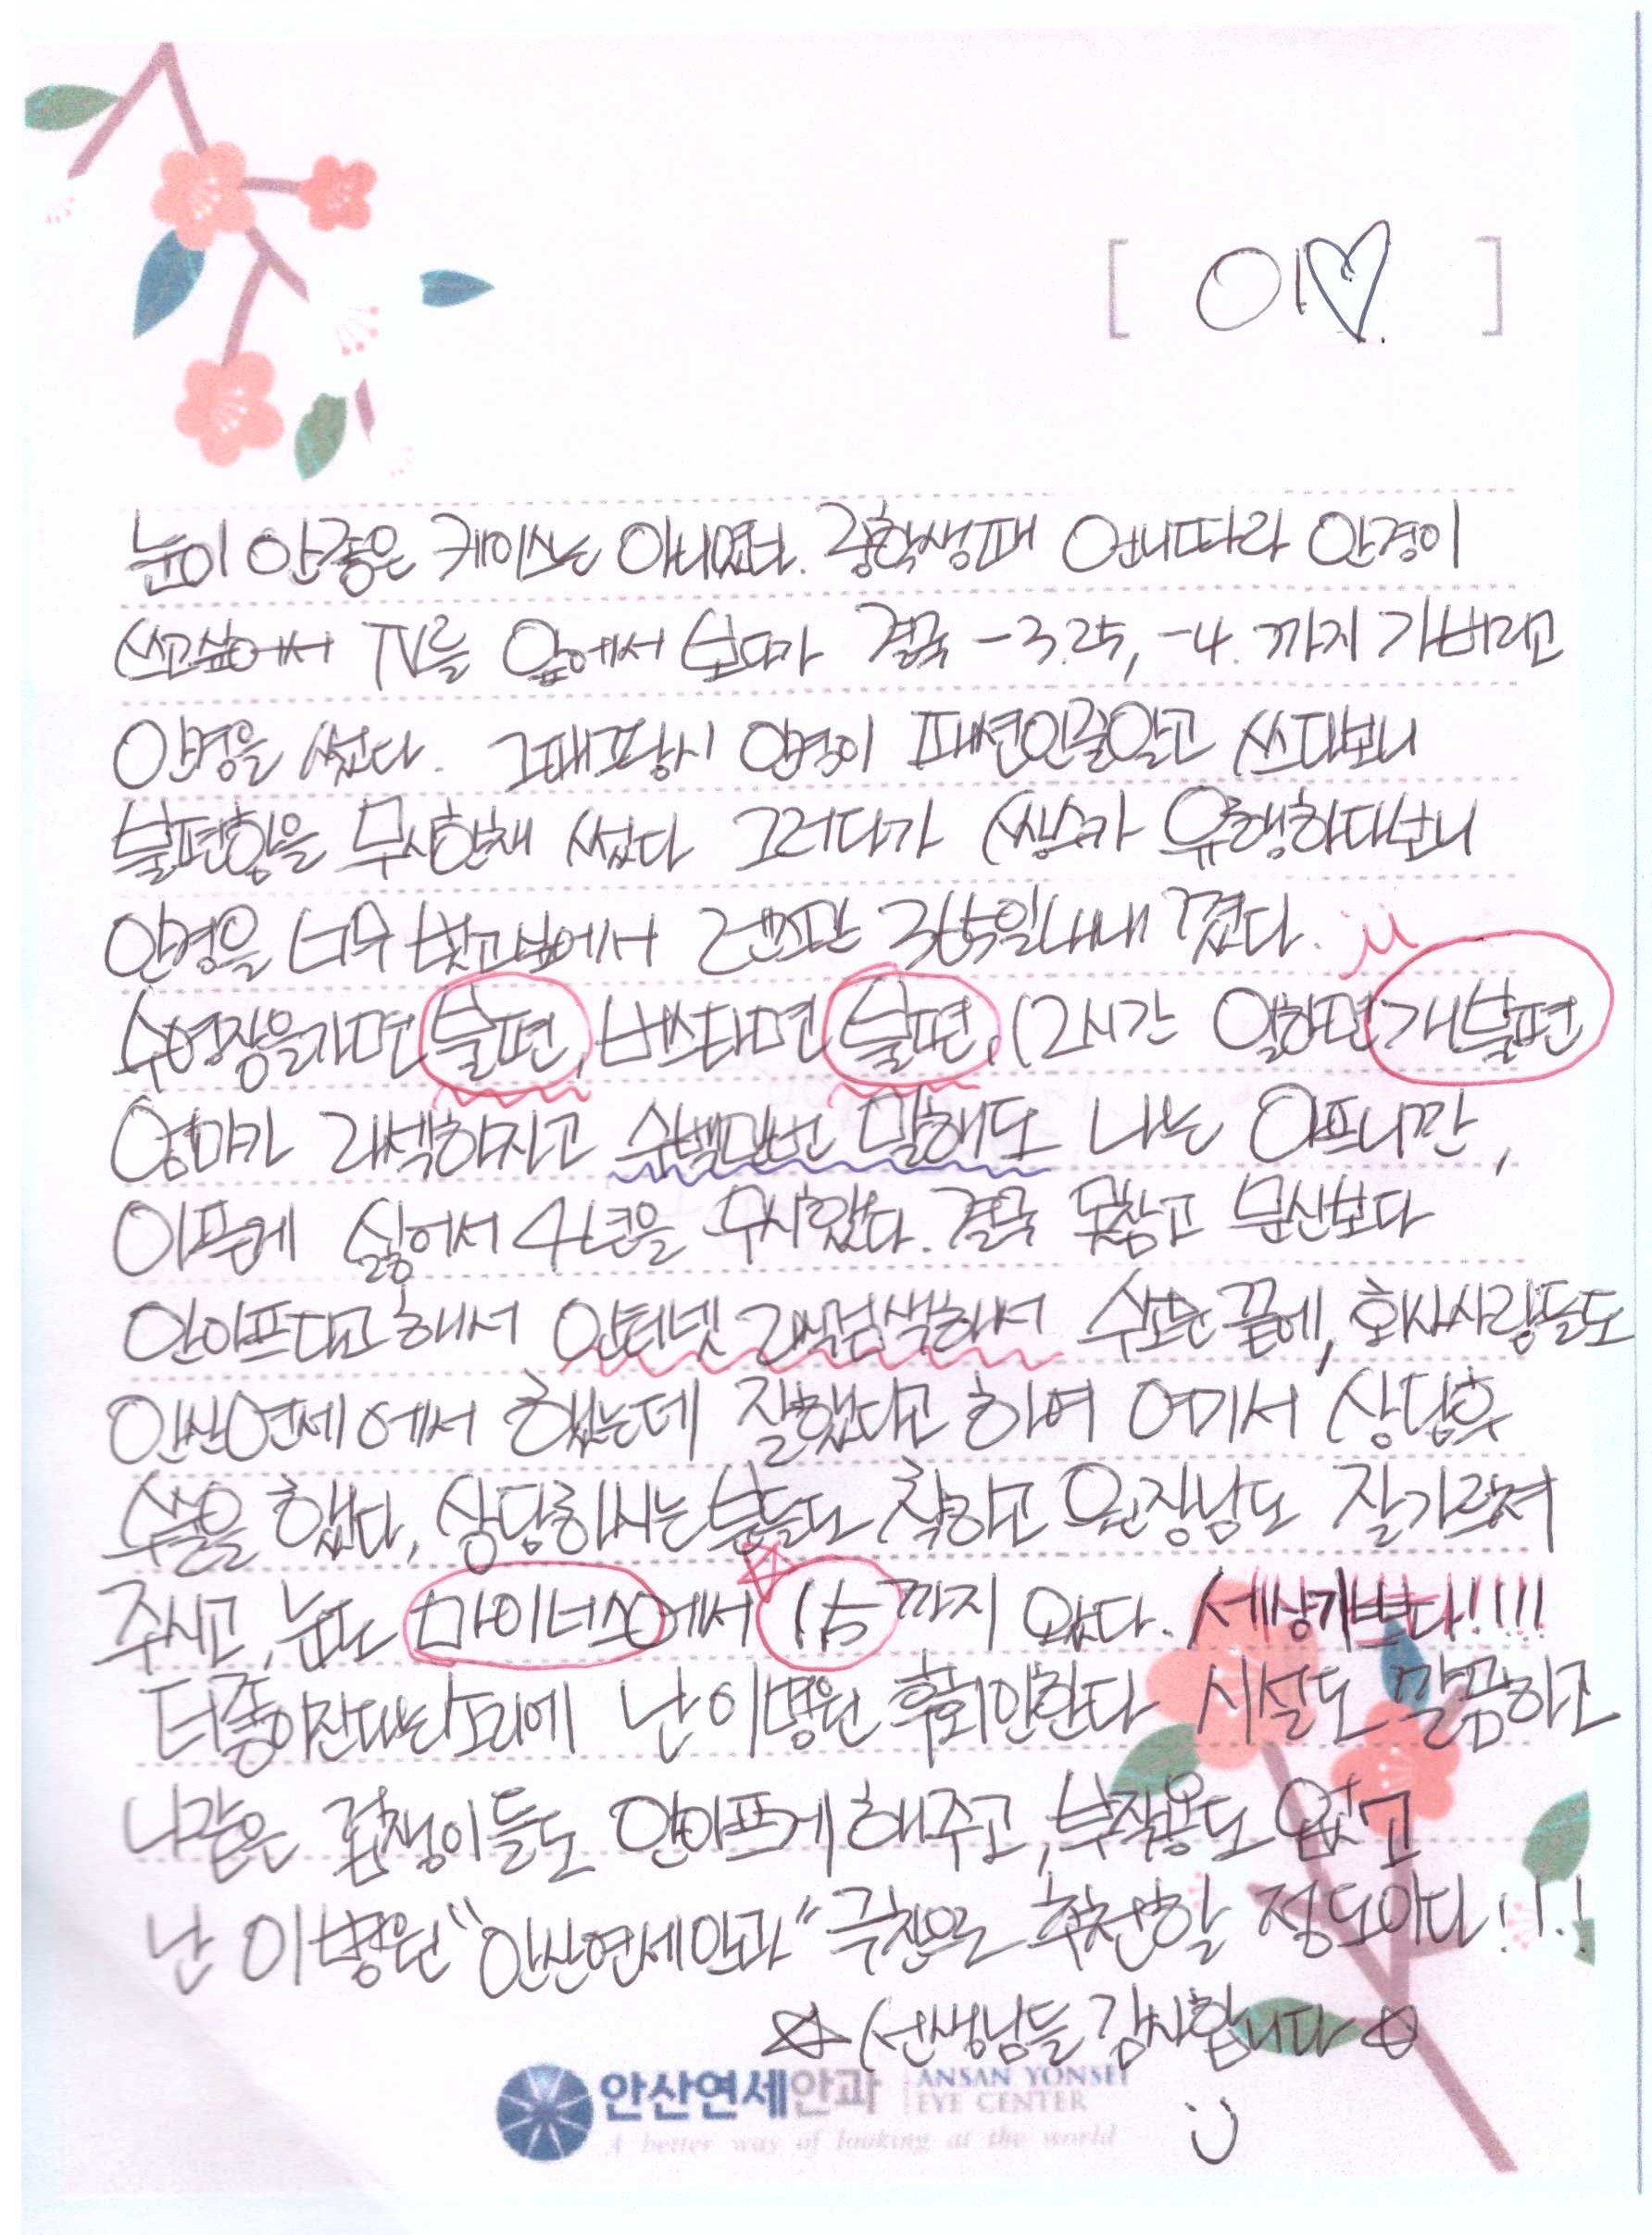 [ 이♡. ]
눈이 안좋은 케이스는 아니였다. 중학생때 언니따라 안경이
쓰고싶어서 TV를 앞에서 보다가 결국 -3.25, -4. 까지 가버리고
안경을 썼다. 그때그당시 안경이 패션인줄알고 쓰다보니
불편함을 무시한채 썼다 그러다가 쌍수가 유행하다보니
안경을 너무 벗고싶어서 렌즈만 365일내내 꼈다.
수영장을가면 불편, 버스타면 불편, 12시간 일하면 개불편
엄마가 라섹하자고 수백만번 말해도 나는 아프니깐,
아픈게 싫어서 4년을 무시했다. 결국 못참고 문산보다
안아프다고해서 인터넷 라섹검색해서 수소문 끝에, 회사사람들도
안산연세에서 했는데 잘했다고 하여 여기서 상담후
수술을 했다, 상담하시는분들도 착하고 원장님도 잘가르쳐
주시고, 눈도 마이너스에서 1.5까지 왔다. 세상기쁘다!!!!
더좋아진다는소리에 난 이병원 후회안한다 시설도 깔끔하고
나같은 겁쟁이들도 안아프게 해주고, 부작용도 없고
난 이병원 "안산연세안과" 극찬으로 추천할 정도이다!!!
☆ 선생님들 감사합니다 ☆
안산연세안과 ANSAN YONSEI
EYE CENTER
A better way of looking at the world